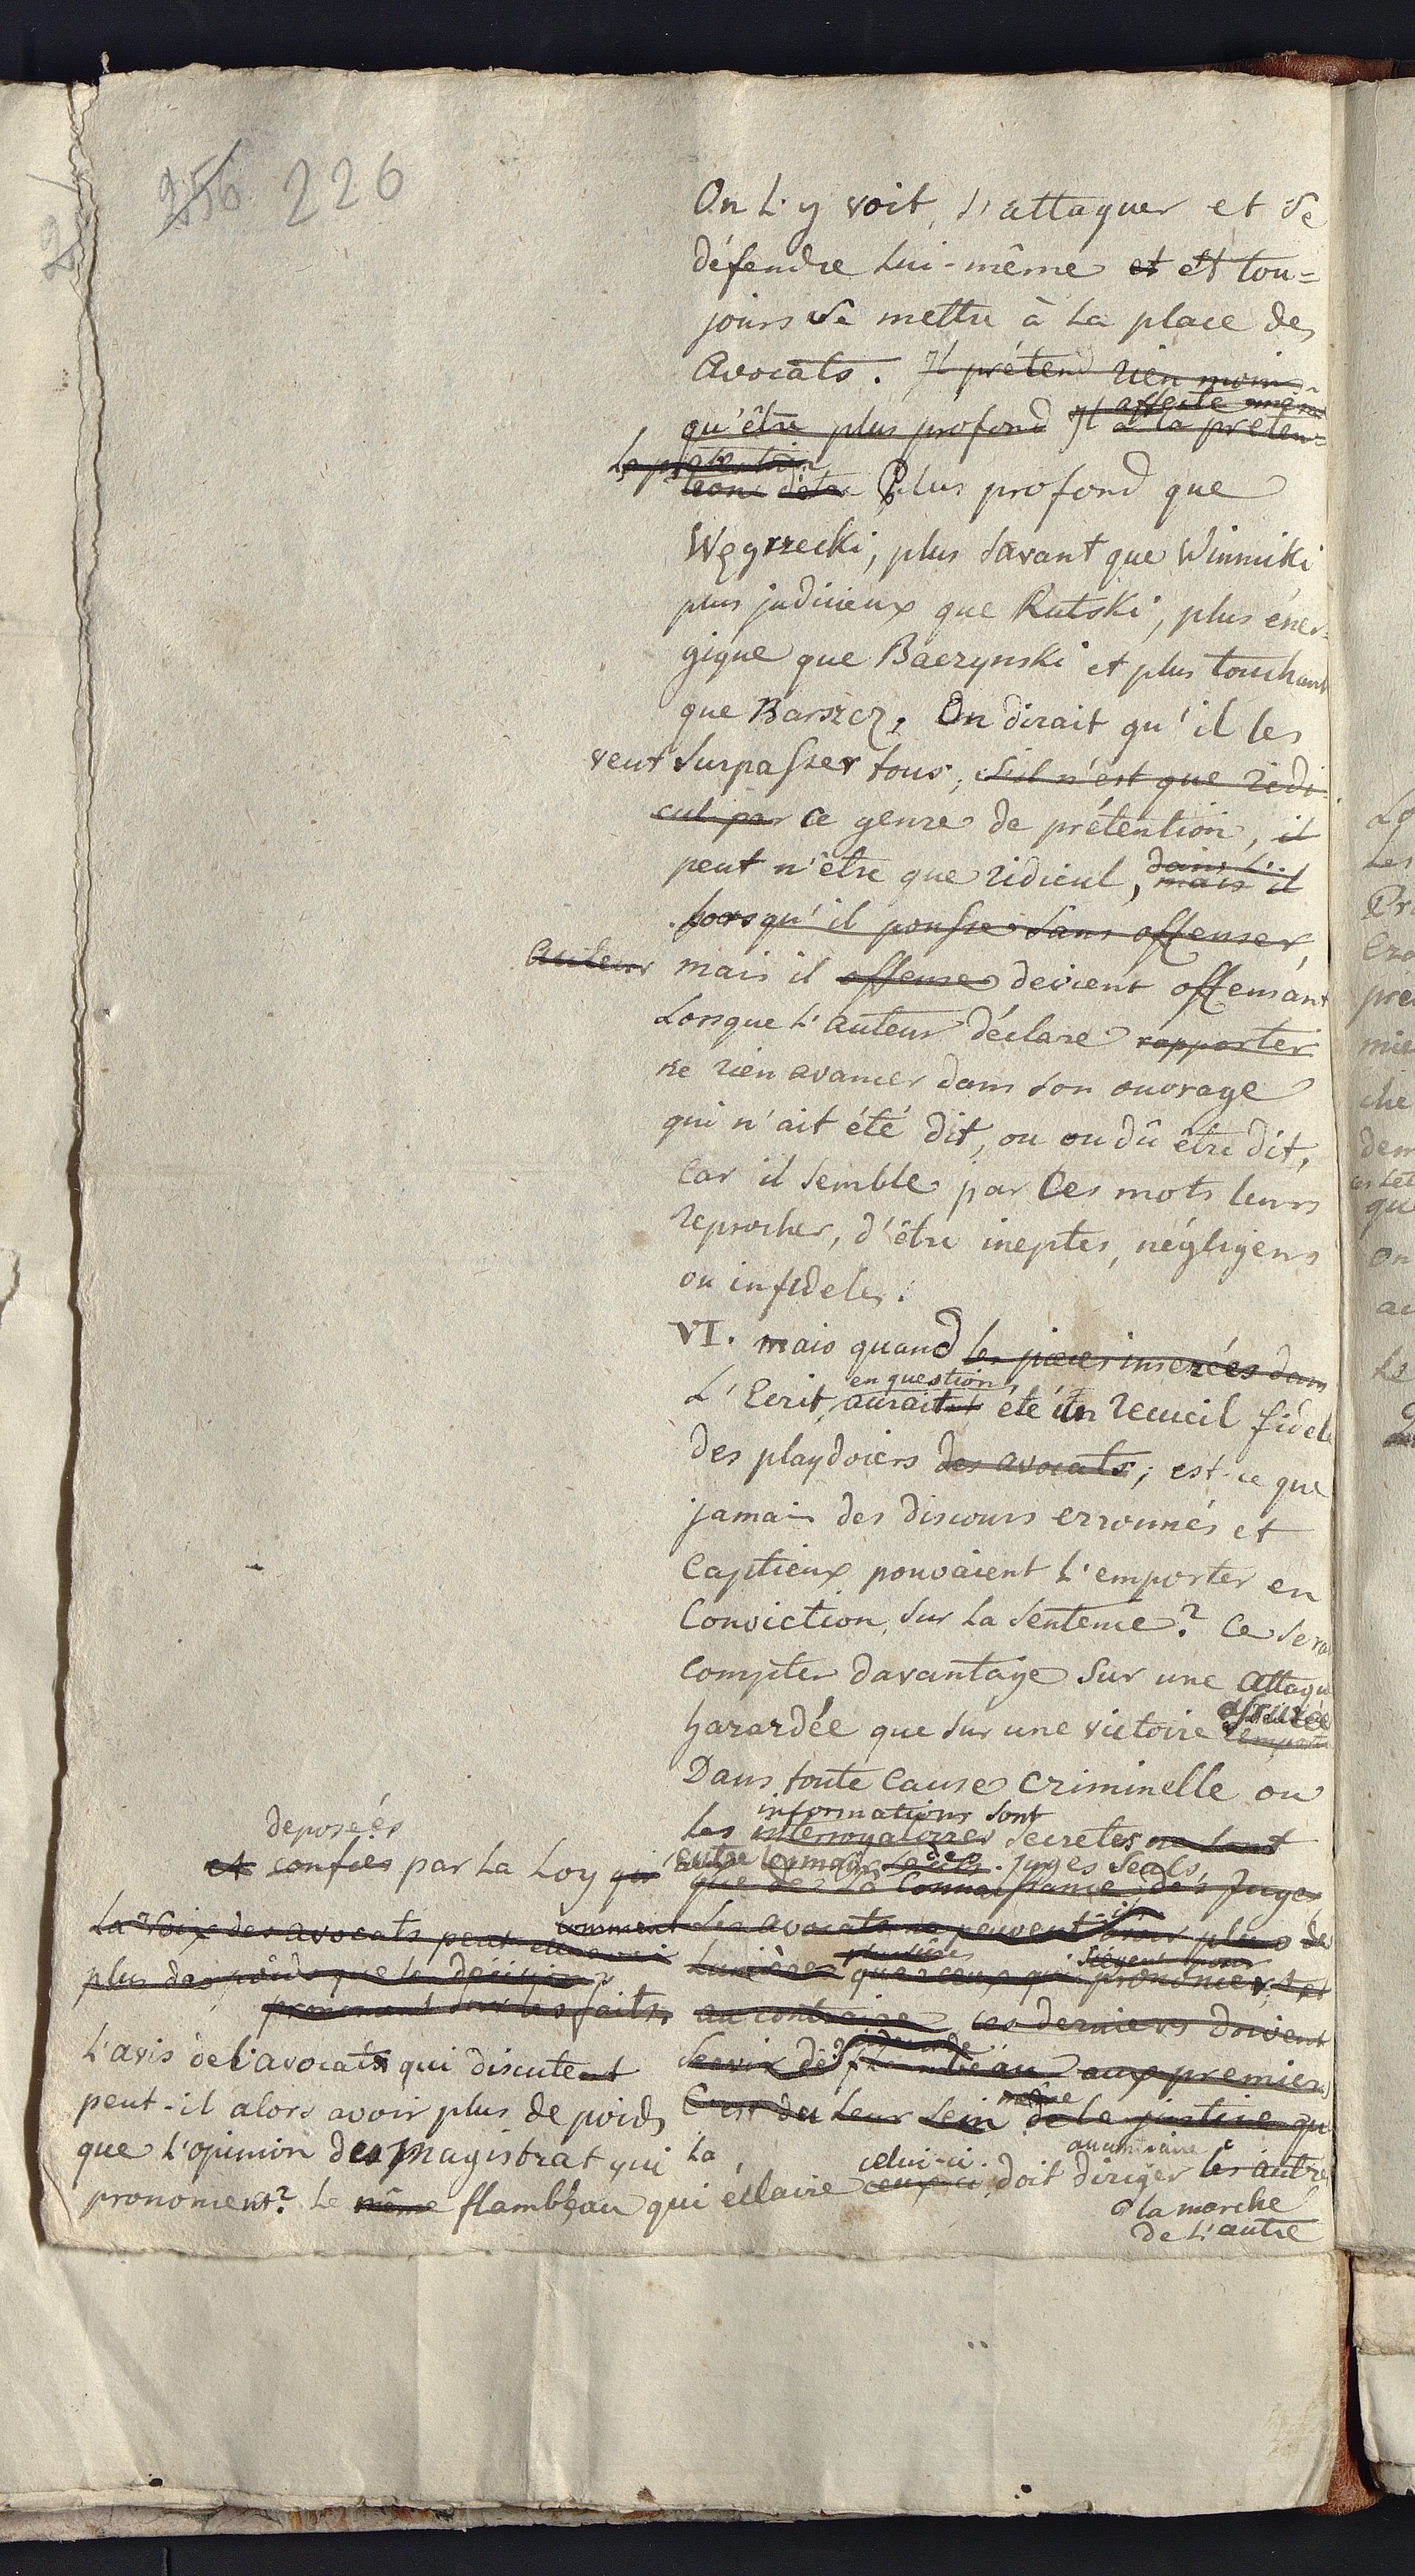 256 226
On l'y voit, s'attaquer et se
défendre lui-même et et tou=
jours se mettre à la place des
Avocats. Il prétend rien moins
qu'être plus profond Il affecte même
a la préten=
la prétention
tion d'être Plus profond que
Węgrzecki, plus savant que Winniki
plus judicieux que Rutski, plus éner=
gique que Baczynski et plus touchant
que Barszcz, On dirait qu'il les
veut surpasser tous, s'il n'est que ridi
cul par ce genre de prétention, il
peut n'être que ridicul, mais il
dans l'
lorsqu'il pousse sans offenser,
Auteur mais il offense devient offensant
Lorsque l'auteur déclare rapporter
ne rien avancer dans son ouvrage
qui n'ait été dit, ou ou dû être dit,
Car il semble par Ces mots leurs
reprocher, d'être ineptes, négligens
ou infideles.
VI. mais quand les pieces inserées dans
L'Ecrit en question, auraitent été un recueil fidel
des playdoiers des avocats; est-ce que
jamais des discours erronnés et
Captieux pouvaient l'emporter en
Conviction, sur la sentence? Ce serai
Compter davantage sur une attaqu
hazardée que sur une victoire assurée
remporté
Dans toute Cause Criminelle ou
les informations sont
interrogatoires secretes ne sont
deposées
et confies par la Loy qui entre les mains des Juges seuls,
que de la Connaissance des Juges
La voix des avocats peut comment Les avocats ne peuvent avoir plus de
plus de poids que la decision Lumières plus sûres que ceux qui siégent pour prononcer
prononcent sur les faits, au contraire ces derniers doivent
servir de flambeau aux premiers
C'est du leur sein même de la justice qu
L'avis de l'avocats qui discutent
peut-il alors avoir plus de poids
que l'opinion des Magistrat qui la
prononcent? Le même flambeau qui éclaire ceux-ci celui-ci doit diriger les autre
la marche
de l'autre